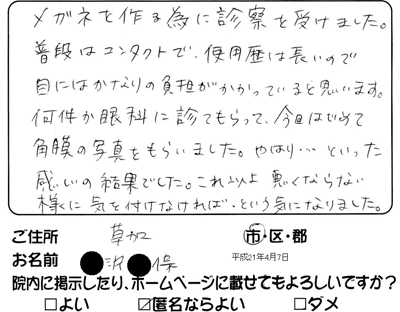 メガネを作る為に診察を受けました。
普段はコンタクトで、使用歴は長いので
目にはかなりの負担がかかっていると思います。
何件か眼科に診てもらって、今回はじめて
角膜の写真をもらいました。やはり…といった
感じの結果でした。これ以上悪くならない
様に気を付けなければ、という気になりました。
ご住所 草加 市・区・郡
お名前 ●沢●保 平成21年4月7日
院内に掲示したり、ホームページに載せてもよろしいですか？
□よい ☑匿名ならよい □ダメ